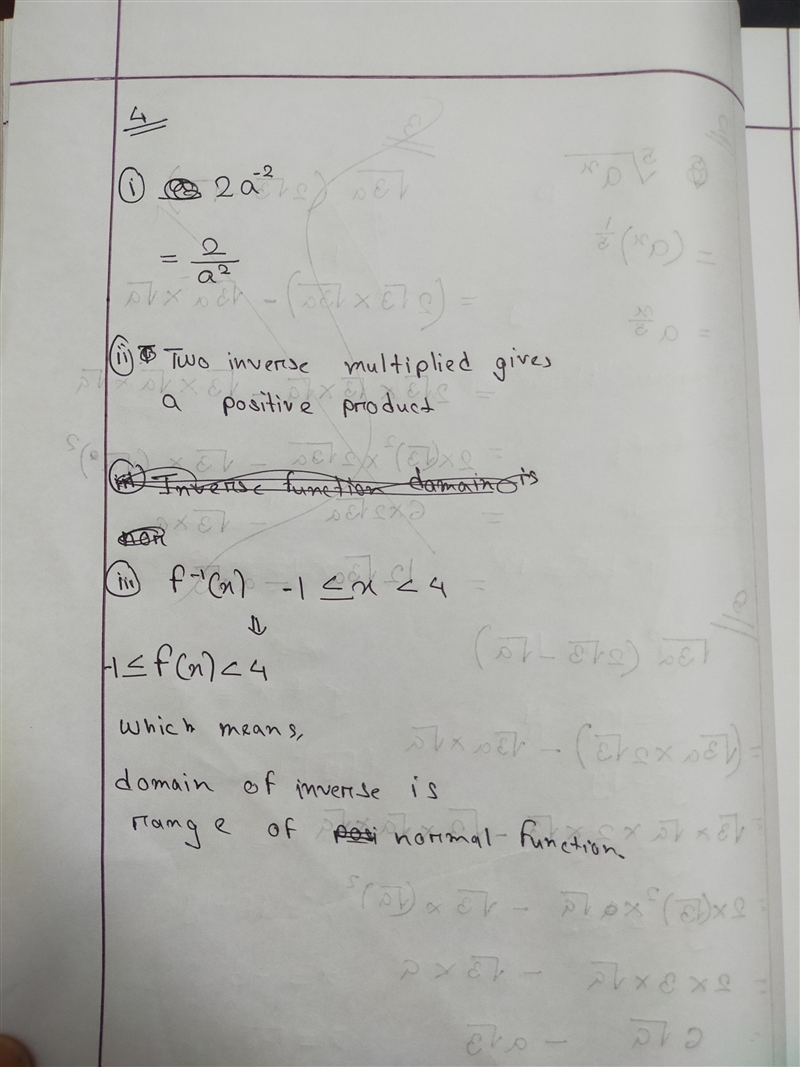 4
(i) 2a⁻²
= 2/a²
(ii) Two inverse multiplied gives
a positive product
(iii) Inverse function domain is
non
(iii) f⁻¹(x) -1 ≤ x < 4
⇓
-1 ≤ f(x) < 4
which means,
domain of inverse is
range of posi normal function.